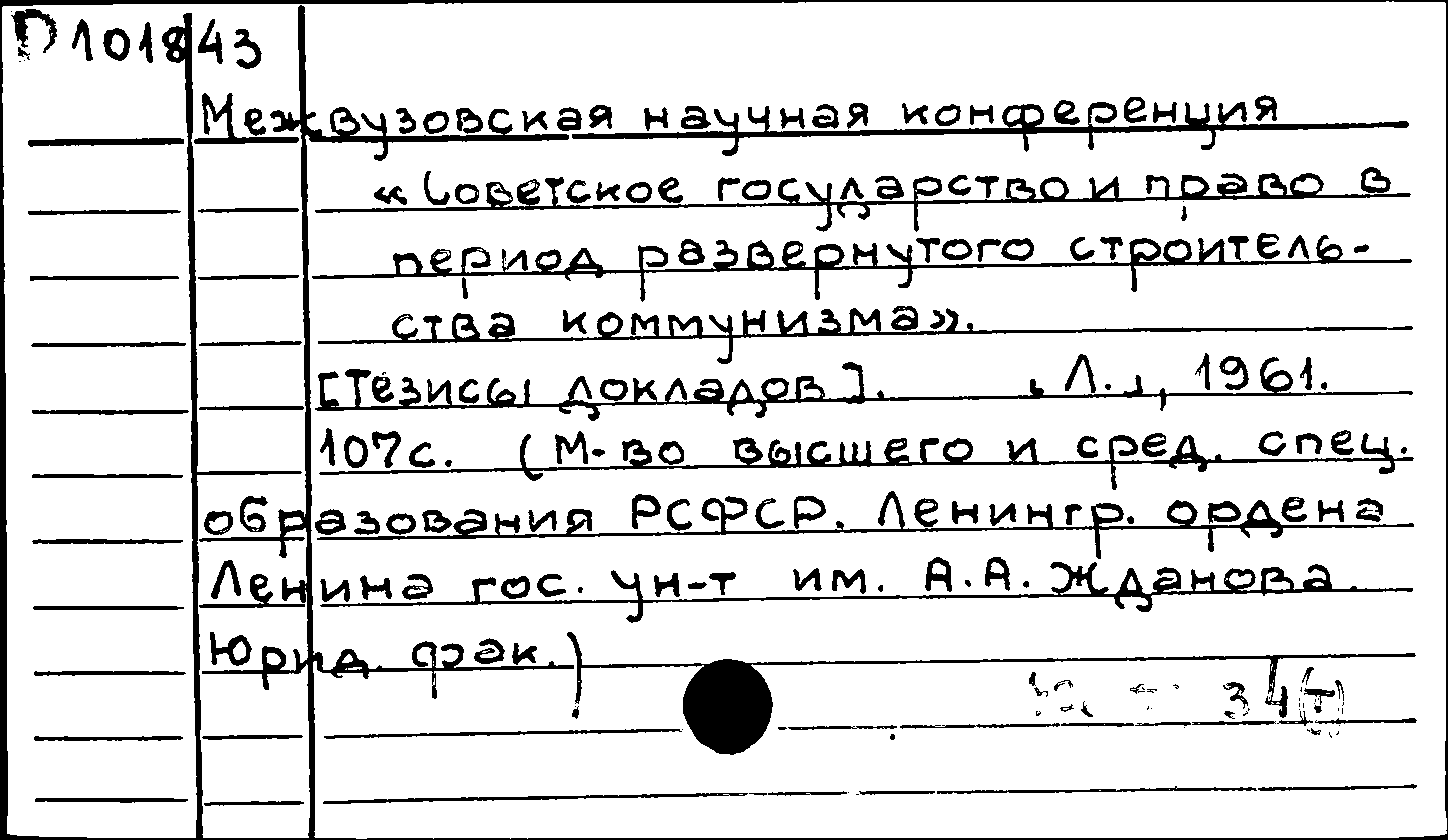 D101843
Межвузовская научная конференция
«Советское государство и право в
период развернутого строитель-
ства коммунизма».
[Тезисы докладов]. Л., 1961.
107с. (М-во высшего и сред. спец.
образования РСФСР. Ленингр. ордена
Ленина гос. ун-т им. А.А. Жданова.
Юрид. фак.)
34(т)